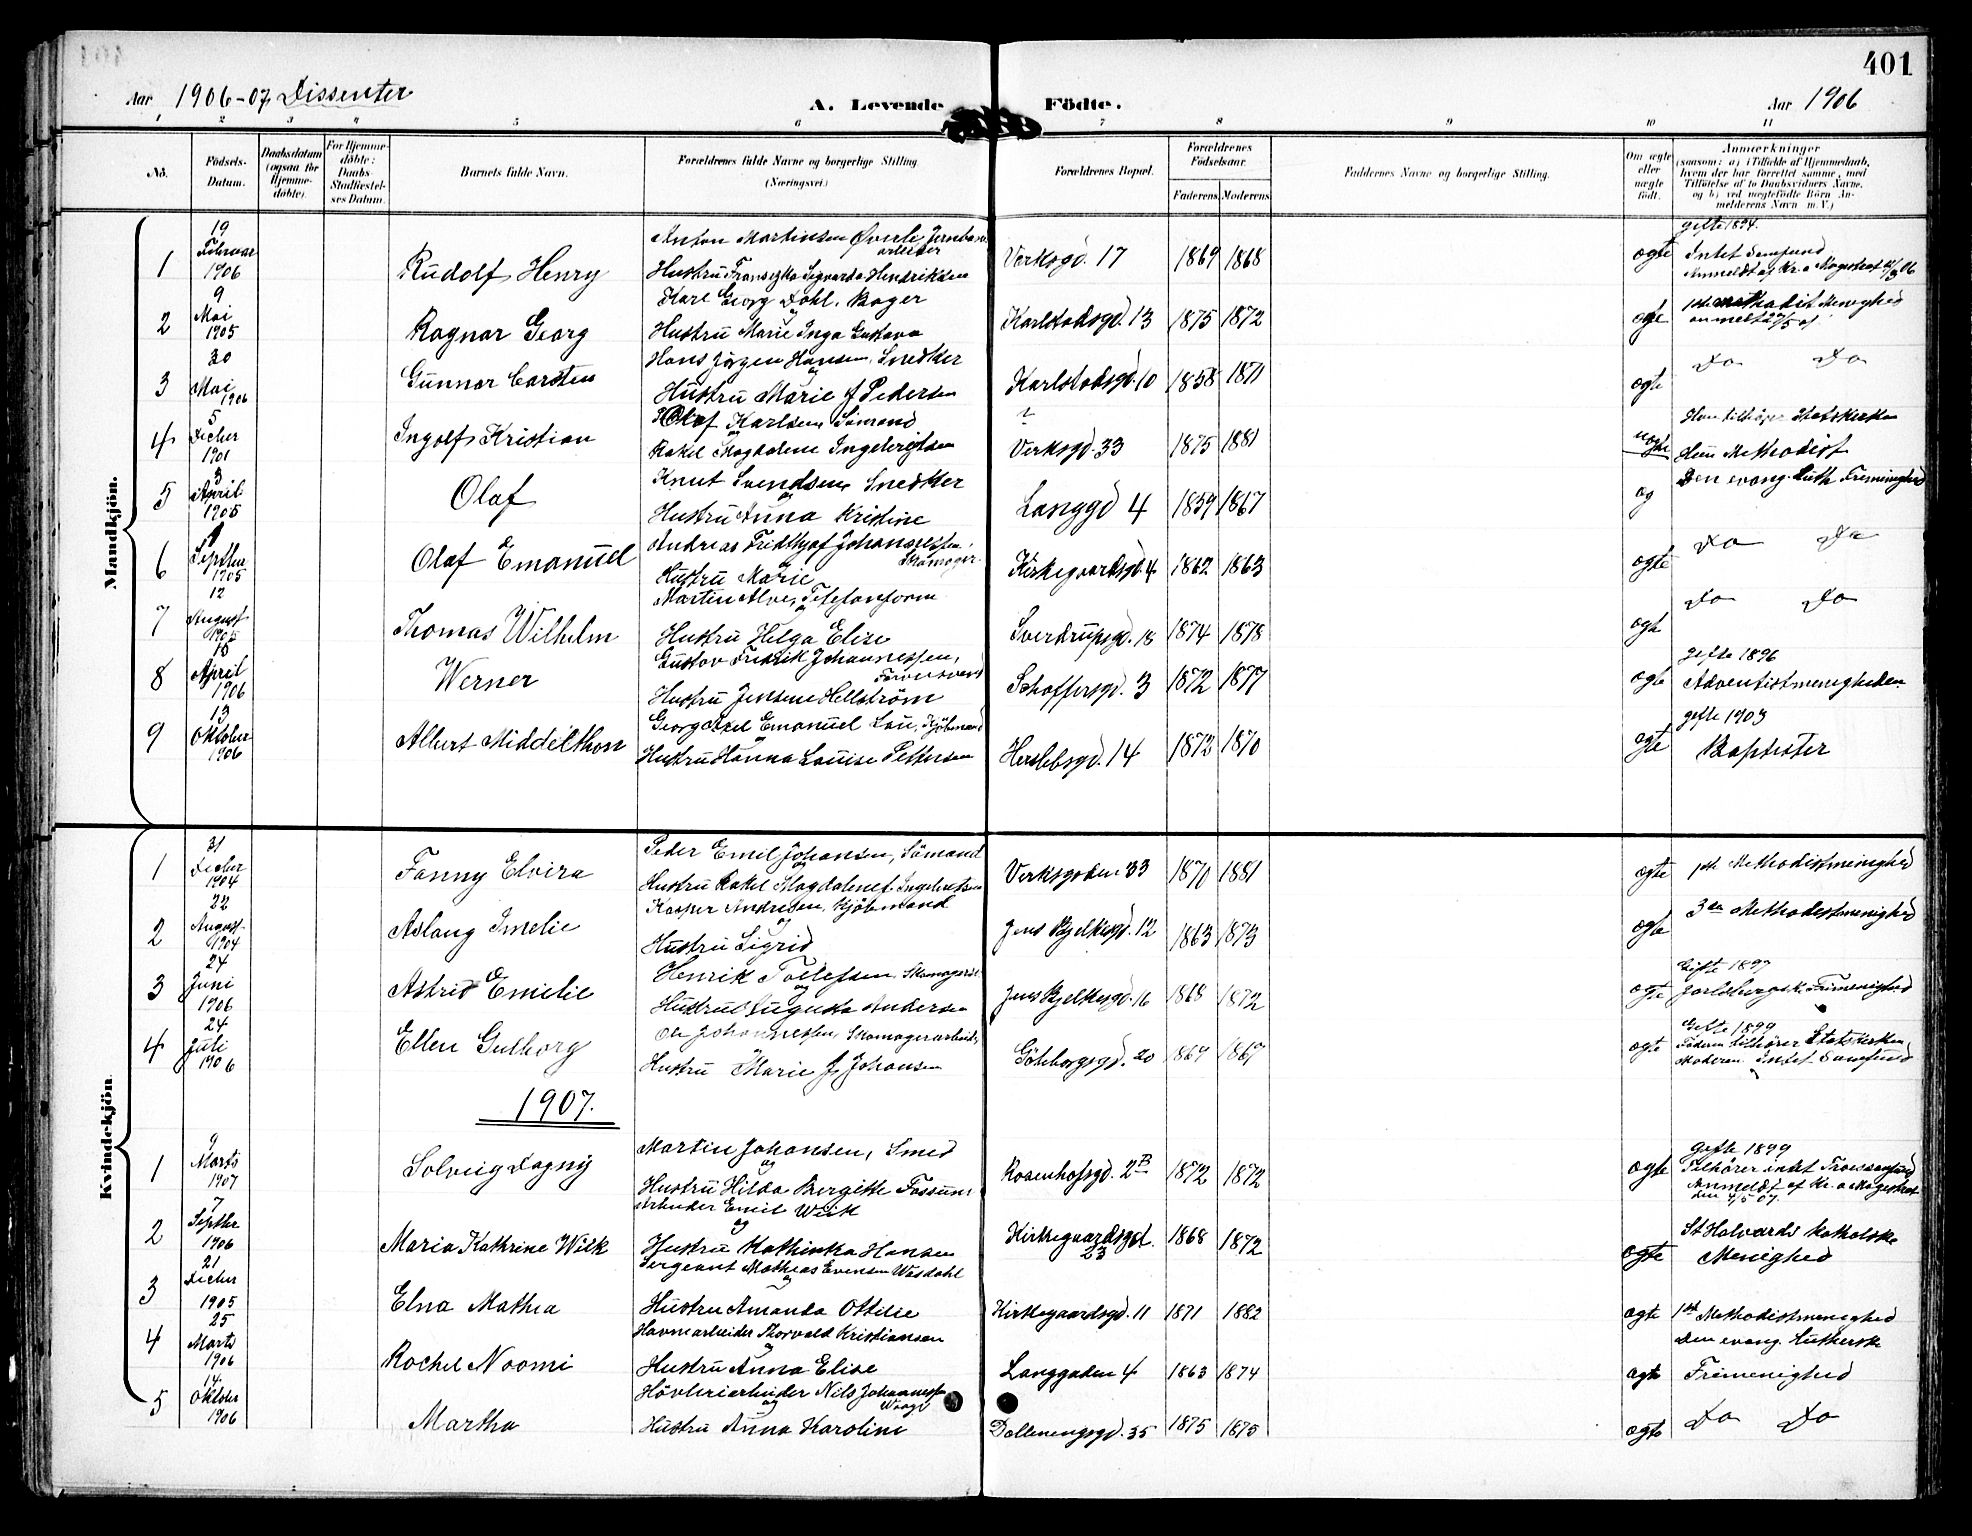 401
Aar 1906-07 Dissenter
A. Levende Födte.
Aar 1906
1 2 3 4 5 6 7 8 9 10 11
No.
Födsels-Datum.
Daabsdatum (ogsaa for Hjemme-döbte).
For Hjemme-döbte: Daabs-Stadfæstel-ses Datum.
Barnets fulde Navn.
Forældrenes fulde Navne og borgerlige Stilling. (Næringsvei.)
Forældrenes Bopæl.
Forældrenes Födselsaar.
Faderens Moderens
Faddernes Navne og borgerlige Stilling.
Om ægte eller uægte födt.
Anmærkninger
(saasom: a) i Tilfælde af Hjemmedaab, hvem der har forrettet samme, med Tilföielse af to Daabsvidners Navne, og b) ved uægtefödte Börn An-melderens Navn m. V.)
Mandkjön.
1 19 Februar 1906 Rudolf Henry Anton Martinsen Øverli Jernbanearbeider Hustru Franseska Segvarda Hendriksen Verksgd. 17 1869 1868 ægte gifte 1894. Intet Samfund Anmeldt af Kr.a Magistrat
2 9 Mai 1905 Ragnar Georg Karl Georg Dahl, Bager og Hustru Marie Inga Gustava Karlstadsgd. 13 1875 1872 ægte 1ste Methodist Menighed
3 30 Mai 1906 Gunnar Carsten Hans Jørgen Hansen, Snedker og Hustru Marie f Pedersen Karlstadsgd. 10 1858 1871 ægte Do Do
4 5 Decber 1901 Ingolf Kristian Olaf Karlsen Sömand og Rakel Magdalene Ingebrigtsen ? Verksgd. 33 1875 1881 uægte Han tilhører Statskirken Hun Methodist
5 3 April 1905 Olaf Knut Svendsen Snedker og Hustru Anna Kristine Langgd 4 1859 1867 æg Den evang. Luth. Frimenighed
6 Septber 1905 Olaf Emanuel Andreas Fridthjof Johannessen, Skomager og Hustru Marie Kirkegaardsgd. 4 1862 1863 ægte Do Do
7 12 August 1905 Thomas Wilhelm Martin Alve, Telefonform og Hustru Helga Elise Sverdrupsgd. 18 1874 1878 ægte Do Do
8 15 April 1906 Werner Gustav Fredrik Johannessen, Farversvend Hustru Jensine Hellström Schoffersgd. 3 1872 1877 ægte gifte 1896 Adventistmenigheden
9 13 Oktober 1906 Albert Middelthon Georg Axel Emanuel Lau, Kjöbmand og Hustru Hanna Louise Pettersen Herslebsgd. 14 1872 1870 ægte gifte 1903 Baptister
Kvindekjön.
1 31 Decber 1904 Fanny Elvira Peder Emil Johansen, Sömand og Hustru Rakel Magdalene f. Ingebretsen Verksgaden 33 1870 1881 ægte 1ste Methodistmenighed
2 22 August 1904 Aslaug Imelie Kasper Andresen, Kjöbmand og Hustru Sigrid Jens Bjelkesgd. 12 1863 1873 ægte 3die Methodistmenighed
3 24 Juni 1906 Astrid Emilie Henrik Tollefsen, og Hustru Augusta Andersen Jens Bjelkesgd. 16 1868 1872 ægte Gifte 1897 Jarlsbergsk. Frimenighed
4 24 Juli 1906 Ellen Gulborg Ole Johannessen, Skomagerarbeid. Hustru Marie f. Johansen Göteborgsgd. 20 1867 ægte Gifte 1899 Faderen tilhører Statskirken, Moderen Intet Samfund
1907.
1 9 Marts 1907 Solveig Dagny Martin Johansen, Smed og Hustru Hilda Bergitte Fossum Rosenhofsgd. 2B 1872 1872 ægte Gifte 1899 Tilhører intet Troessamfund Anmeldt af Kr.a Magistrat den 4/5 07.
2 7 Septbr 1906 Maria Kathrine Wiik Arbeider Emil Wiik og Hustru Kathinka Hansen Kirkegaardsgd. 23 1868 1872 ægte St Halvards katholske Menighed
3 21 Decber 1905 Elna Mathea Sergeant Mathias Evensen Wasdahl og Hustru Amanda Ottilie Kirkegaardsgd. 11 1871 1882 ægte 1ste Methodistmenighed
4 25 Marts 1906 Rachel Noomi Havnearbeider Thorvald Kristiansen og Hustru Anna Elise Langgaden 4 1863 1874 ægte Den evang. Lutherske Frimenighed
5 14 Oktober 1906 Martha Hövleriarbeider Nils Johannessen Waage og Hustru Anna Karoline Dalenengsgd. 35 1875 1875 ægte Do Do